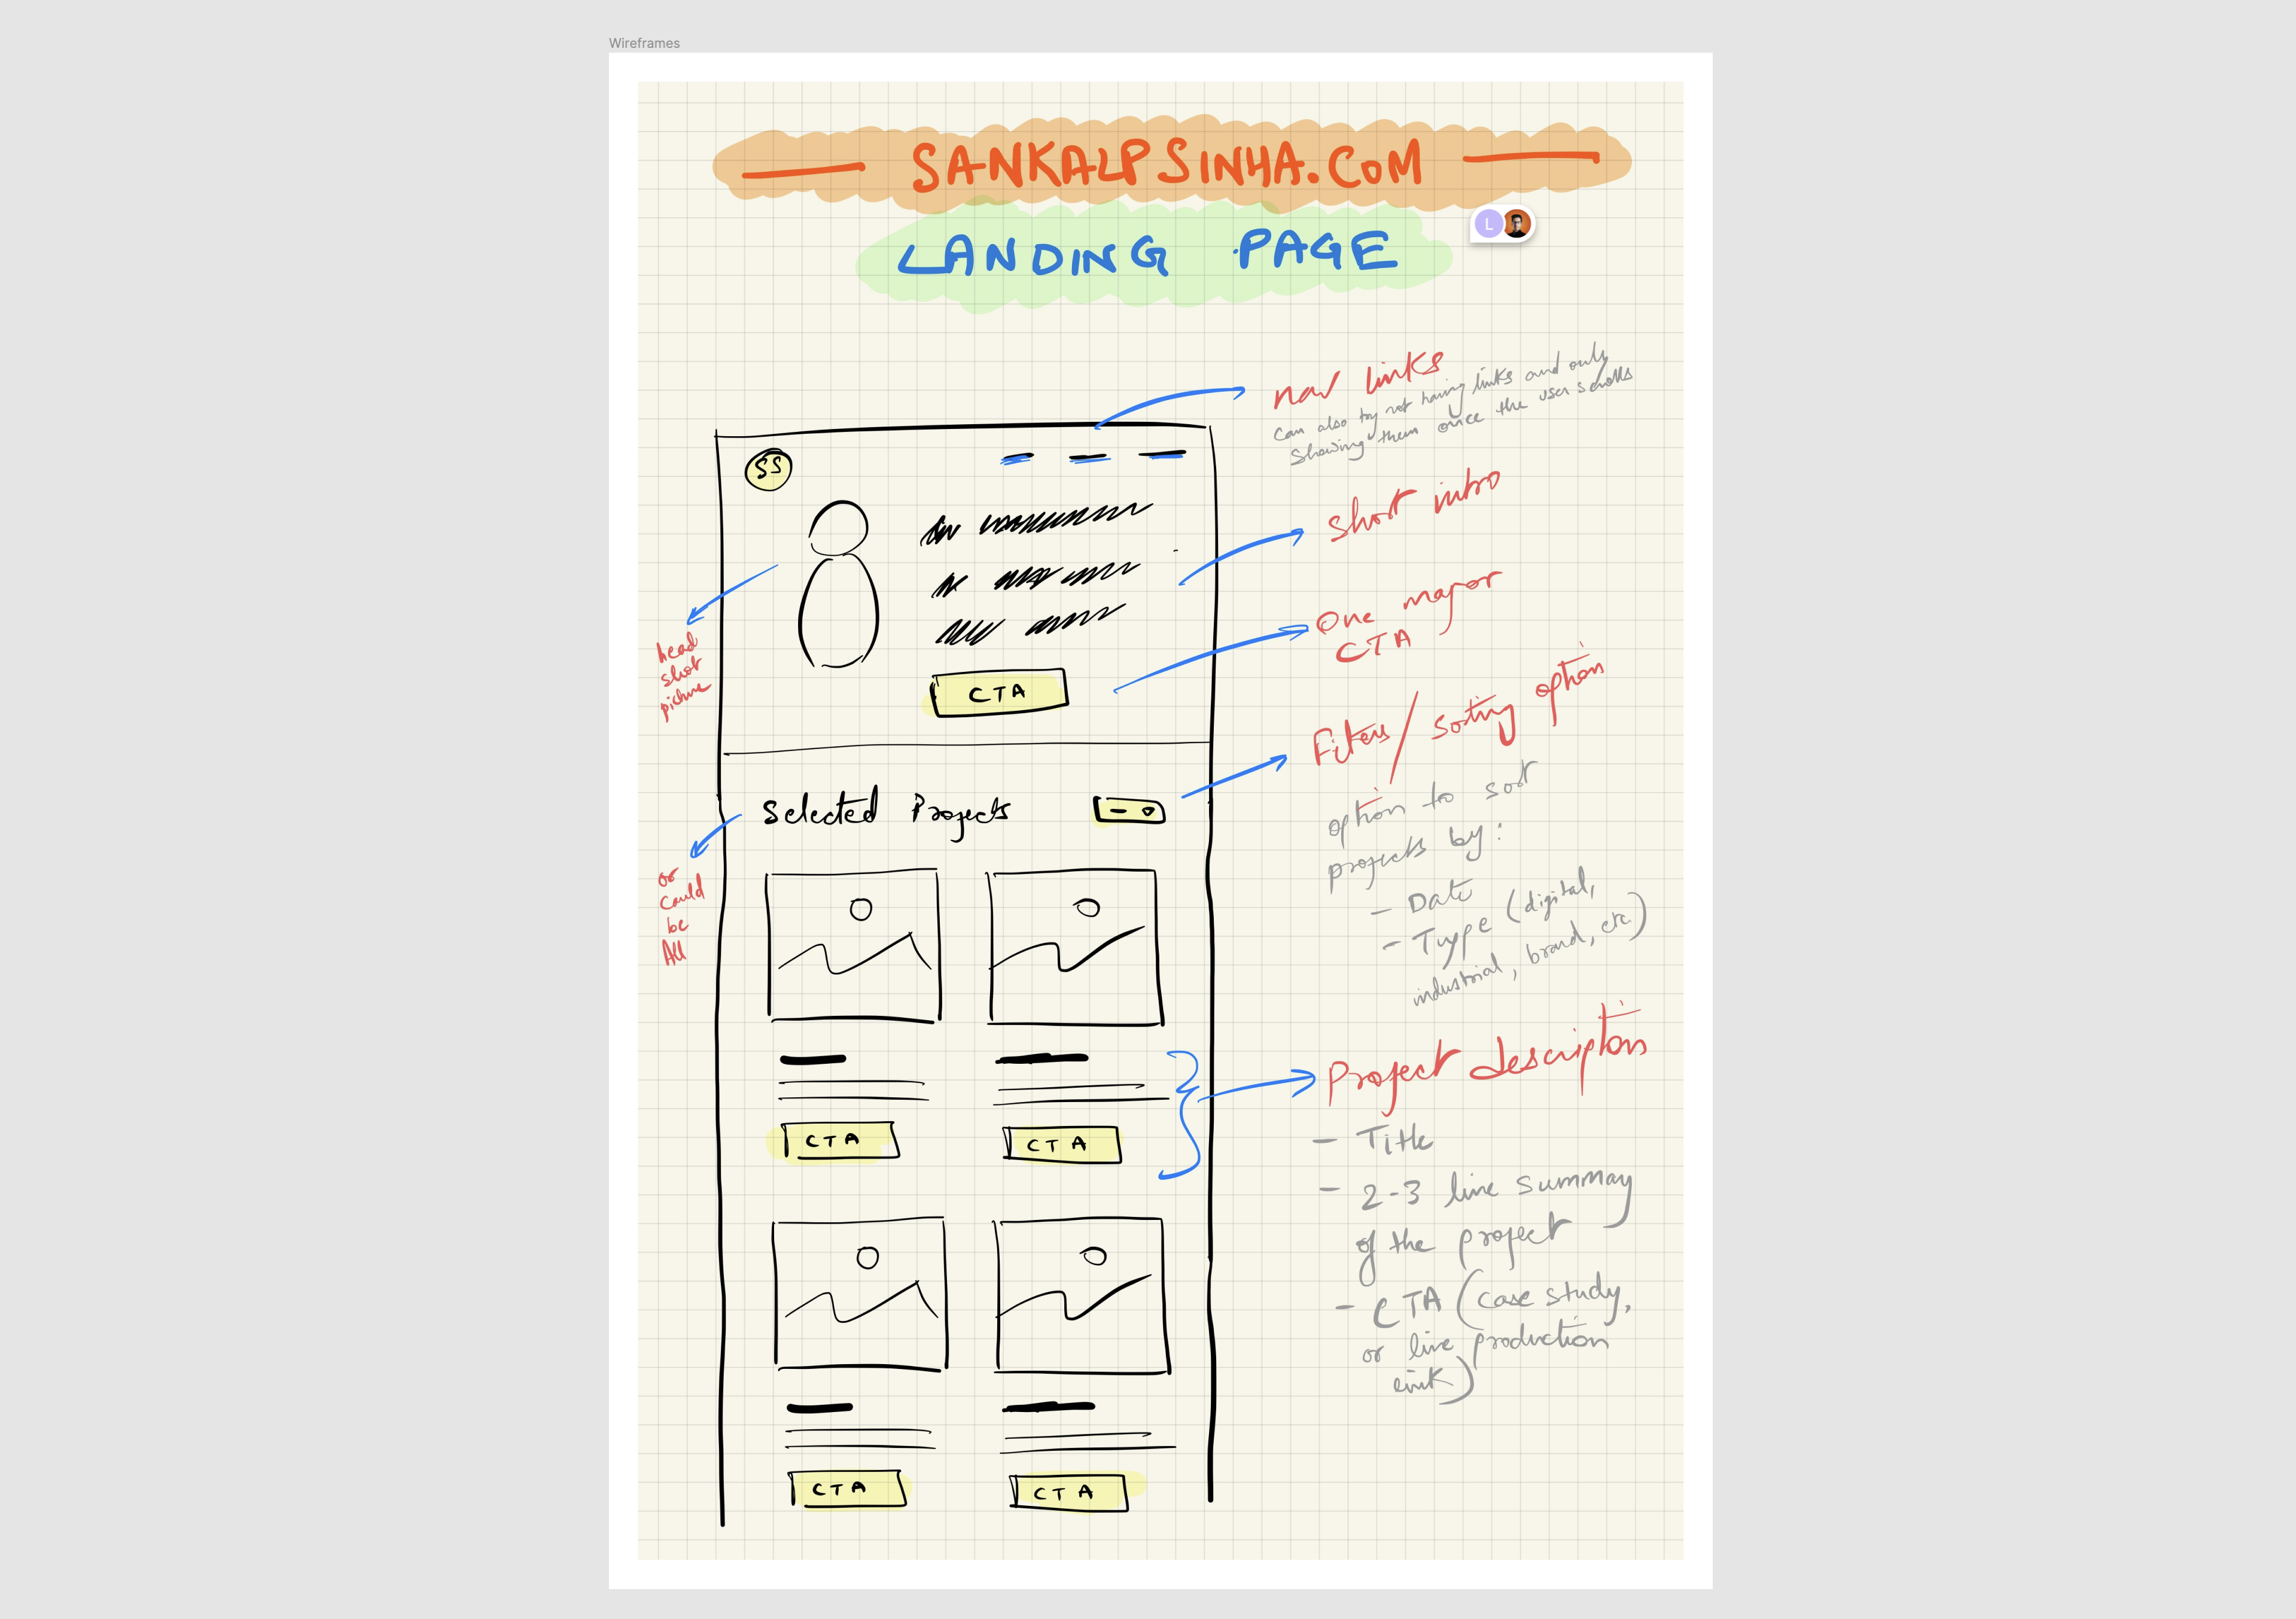 Wireframes
SANKALPSINHA.COM
LANDING PAGE
L
nav links
can also try not having links and only
showing them once the user scrolls
SS
short intro
head
shot
picture
One major
CTA
CTA
Filters / sorting option
option to sort
projects by:
- Date
- Type (digital,
industrial, brand, etc)
Selected Projects
or
could
be
All
Project description
- Title
- 2-3 line summary
of the project
- CTA (case study,
or live production
link)
CTA
CTA
CTA
CTA